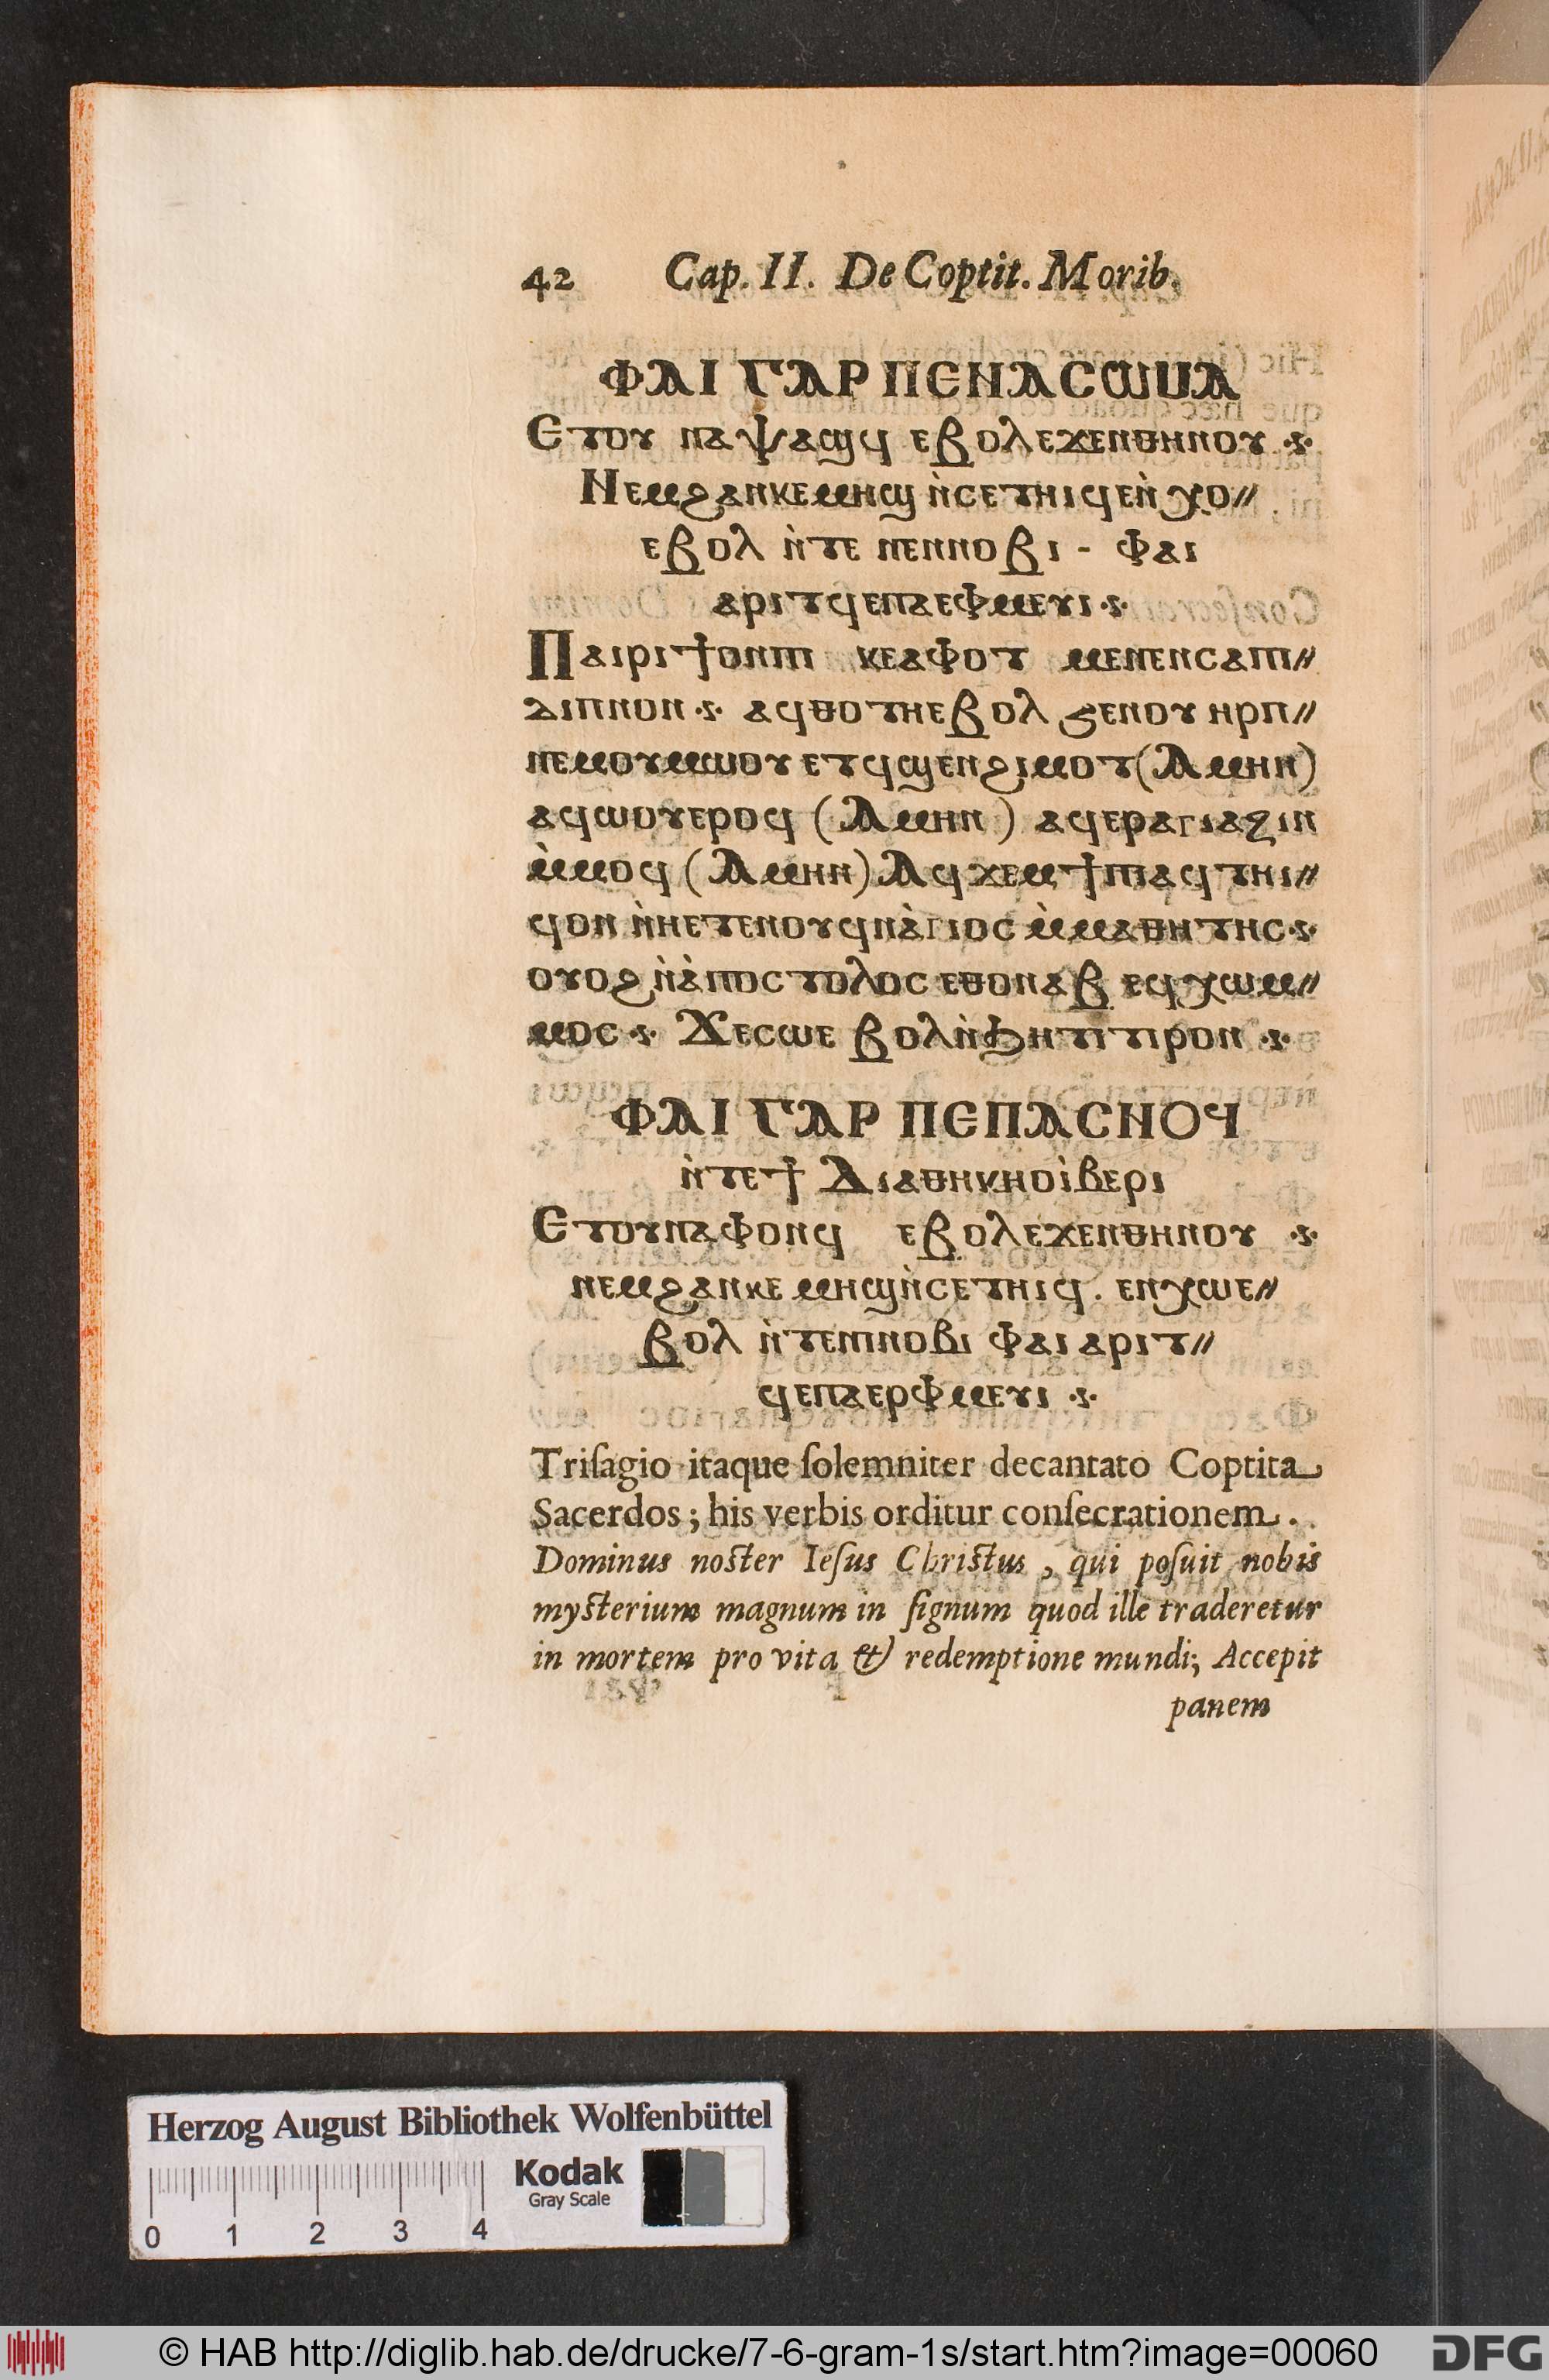 42 Cap. II. De Coptit. Morib.
ⲪⲀⲒ ⲄⲀⲢ ⲠⲈⲚⲀⲤⲰⲘⲀ
Ⲉⲧⲟⲩ ⲛⲁⲯⲁϣϥ ⲉⲃⲟⲗⲉϫⲉⲛⲑⲏⲛⲟⲩ
Ⲛⲉⲙϩⲁⲛⲕⲉⲙⲏϣ ⲛ̀ⲥⲉⲧⲏⲓϥⲉⲛ̀ⲭⲟ⸗
ⲉⲃⲟⲗ ⲛ̀ⲧⲉ ⲛⲉⲛⲛⲟⲃⲓ - Ⲫⲁⲓ
ⲁⲣⲓⲧϥⲉⲡⲁⲉⲫⲙⲉⲩⲓ
Ⲡⲁⲓⲣⲓϯⲟⲛ ⲕⲉⲁⲫⲟⲧ ⲙⲉⲛⲉⲛⲥⲁⲡⲓ⸗
ⲇⲓⲡⲛⲟⲛ ⲁϥⲑⲟⲧⲏⲉⲃⲟⲗ ϧⲉⲛⲟⲩ ⲏⲣⲡ⸗
ⲛⲉⲙⲟⲩⲙⲱⲟⲩ ⲉⲧϥϣⲉⲛϩⲓⲙⲟⲧ (Ⲁⲙⲏⲛ)
ⲁϥⲱⲟⲩⲉⲣⲟϥ (Ⲁⲙⲏⲛ) ⲁϥⲉⲣⲁⲅⲓⲁⲍⲓⲛ
ⲙ̀ⲙⲟϥ (Ⲁⲙⲏⲛ) Ⲁϥϫⲉⲙϯⲡⲓⲁϥⲧⲏⲓ⸗
ϥⲟⲛ ⲛ̀ⲏⲉⲧⲉⲛⲟⲩϥⲛⲁ̀ⲅⲓⲟⲥ ⲙ̀ⲙⲁⲑⲏⲧⲏⲥ
ⲟⲩⲟϩ ⲛ̀ⲁ̀ⲡⲟⲥⲧⲟⲗⲟⲥ ⲉⲑⲟⲛⲁⲃ ⲉϥⲭⲱⲙ⸗
ⲙⲟⲥ Ϫⲉⲥⲱⲉ ⲃⲟⲗⲛ̀ϧⲏⲧ ⲧⲓⲣⲟⲛ
ⲪⲀⲒ ⲄⲀⲢ ⲠⲈⲠⲀⲤⲚⲞϤ
ⲛ̀ⲧⲉϯ Ⲇⲓⲁⲑⲏⲕⲏⲟⲓ̀ⲃⲉⲣⲓ
Ⲉⲧⲟⲩⲛⲁⲫⲟⲛϥ ⲉⲃⲟⲗⲉϫⲉⲛⲑⲏⲛⲟⲩ
ⲛⲉⲙϩⲁⲛⲕⲉ ⲙⲏϣⲛ̀ⲥⲉⲧⲏⲓϥ. ⲉⲛⲭⲱⲉ⸗
ⲃⲟⲗ ⲛ̀ⲧⲉⲡⲓⲛⲟⲃⲓ Ⲫⲁⲓ ⲁⲣⲓⲧ⸗
ϥⲉⲡⲁⲉⲣⲫⲙⲉⲩⲓ
Triſagio itaque ſolemniter decantato Coptita
Sacerdos; his verbis orditur conſecrationem.
Dominus noſter Ieſus Chriſtus, qui poſuit nobis
myſterium magnum in ſignum quod ille traderetur
in mortem pro vita & redemptione mundi; Accepit
panem
Herzog August Bibliothek Wolfenbüttel
Kodak
Gray Scale
0 1 2 3 4
© HAB http://diglib.hab.de/drucke/7-6-gram-1s/start.htm?image=00060 DFG